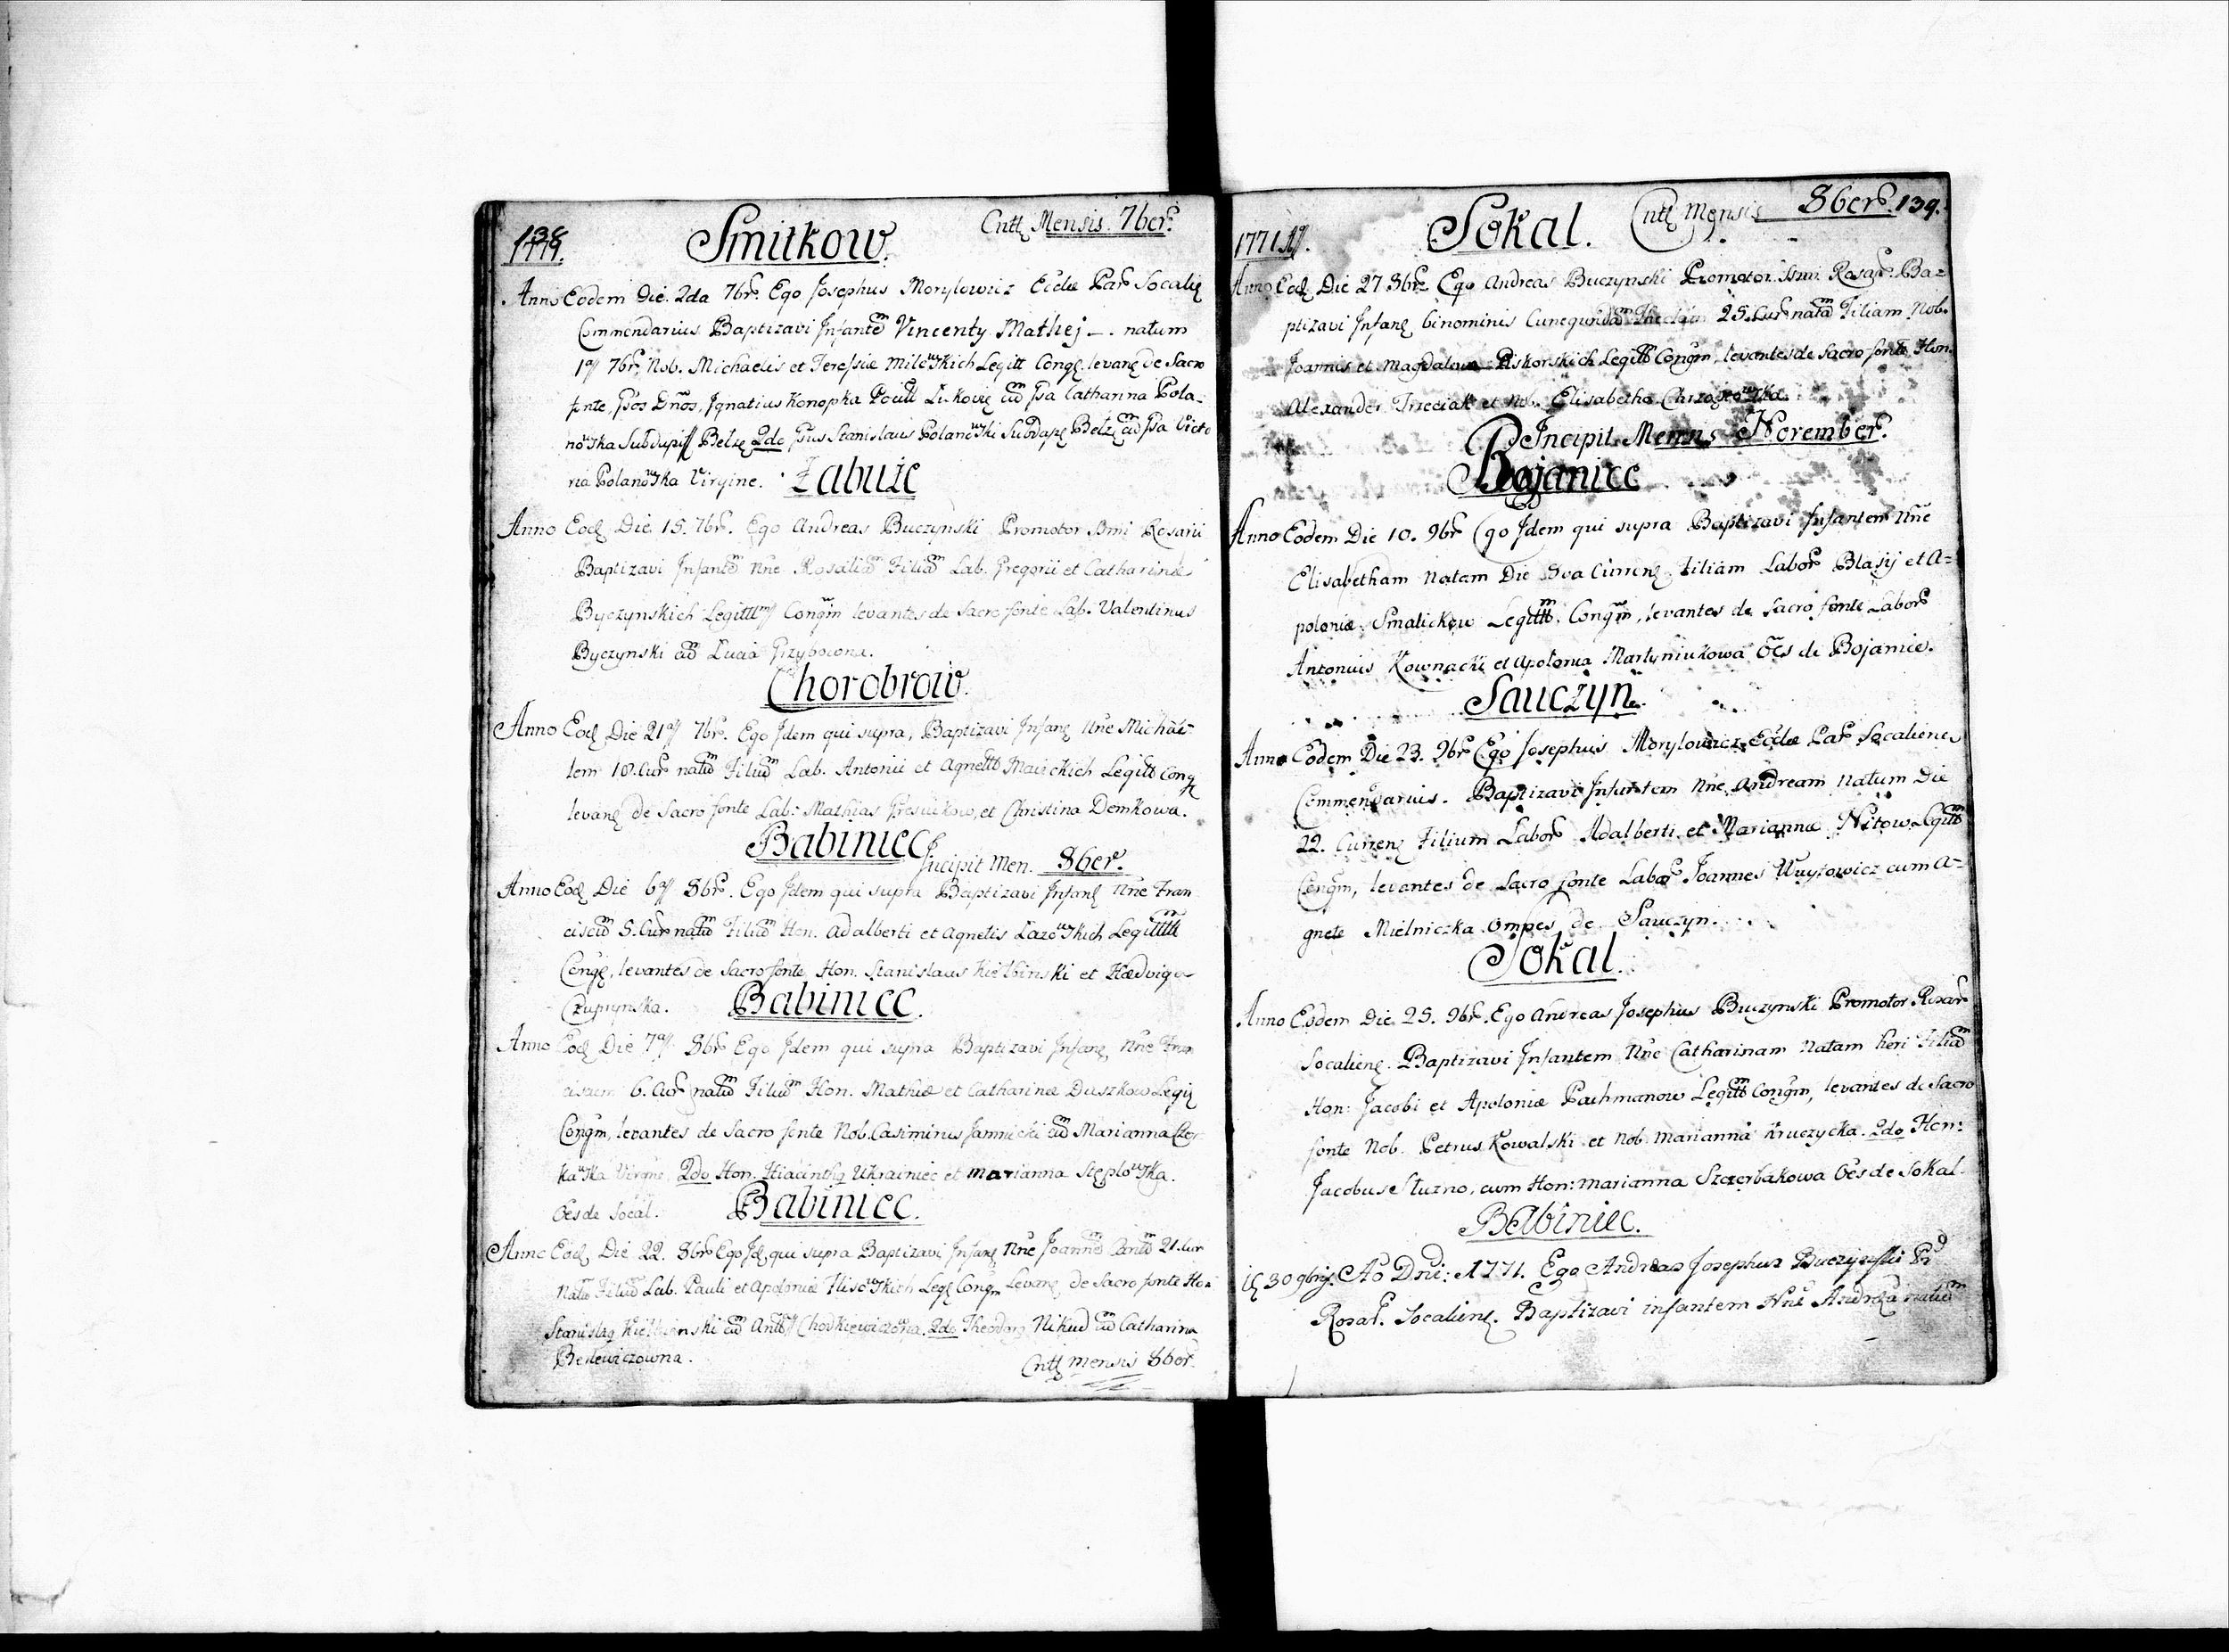 138
1771.
Smitkow.
Cntt Mensis. 7bers
Anno Eodem Die. 2da 7brs. Ego Josephus Morylowicz Ecclae Par Socalis
Commendarius Baptizavi Infantem Vincenty Mathej —. natum
1ma 7brs, Nob. Michaelis et Teressiae Milewskich Legitt Cong. levan de Sacro
fonte, Ignatius Konopka cum Catharina Pola=
nowska 2do Stanislaus Polanowski cum Victo
ria Polanowska Virgine.
Zabuże
Anno Eod Die 15. 7brs. Ego Andreas Buczynski Promotor Ssmi Rosarii
Baptizavi Infantem Nne Rosaliam Filiam Lab. Gregorii et Catharinae
Byczynskich Legittm Congm levantes de Sacro fonte Lab. Valentinus
Byczynski cum Lucia Grzybowona.
Chorobrow.
Anno Eod Die 21ma 7brs. Ego Idem qui supra, Baptizavi Infan Nne Michae=
lem 18. Curs natum Filium Lab. Antonii et Agnett Mavickich Legitt Cong
levan de Sacro fonte Lab: Mathias et Christina Demkowa.
Babiniec
Incipit Men. 8bers.
Anno Eod Die 6ma 8brs. Ego Idem qui supra Baptizavi Infan Nne Fran
ciscum 5. Curs natum Filium Hon. Adalberti et Agnetis Lazowskich Legittm
Cong, levantes de Sacro fonte Hon. Stanislaus Kiełbinski et Haedviga
Czuprynska.
Babiniec.
Anno Eod Die 7ma 8brs Ego Idem qui supra Baptizavi Infan, Nne Fran
ciscum 6. Curs natum Filium Hon. Mathiae et Catharinae Duszkow Legit
Congm, levantes de Sacro fonte Nob. Casimirus Jannicki cum Marianna Czer
kawska Virgine, 2do Hon. Hiacinthus Ukrainiec et Marianna Stęplowska.
Oes de Socal.
Babiniec.
Anno Eod Die 22. 8brs Ego Id qui supra Baptizavi Infan Nne Joannem 21. Cur
Natum Filium Lab. Pauli et Apoloniae Lisowskich Leg Congm Levan de Sacro fonte Hon
Stanislaus Kiełbinski cum Chodkiewiczowna. 2do Theodorus Nikud cum Catharina
Berlewiczowna.
Cntt mensis 8ber.
1771.
Sokal.
Cntt Mensis 8bers. 139.
Anno Eod Die 27 8brs Ego Andreas Buczynski Promotor Ssmi Rosars Ba=
ptizavi Infan binominis Cunegundam 25. Curs natam Filiam Nob.
Joannis et Magdalena Piskorskich Legitt Congm, levantes de Sacro fonte Hon.
Alexander Trzeciak et Elisabetha
Incipit Mensis November.
Bojaniec
Anno Eodem Die 10. 9brs Ego Idem qui supra Baptizavi Infantem Nne
Elisabetham Natam Die 8va Curren. Filiam Labors Blasij et A=
poloniae Smalickow Legittm. Congm, levantes de Sacro fonte Labors
Antonius Kownacki et Apolonia Martyniukowa Oes de Bojanice.
Sauczyn.
Anno Eodem Die 23. 9brs Ego Josephus Morylowicz Ecclae Par Socaliens
Commendarius. Baptizavi Infantem Nne Andream Natum Die
22. Curren Filium Labors Adalberti et Marianna Nitow Legitt
Congm, levantes de Sacro fonte Labor Joannes Wuytowicz cum A=
gnete Mielniczka Omnes de Sauczyn.
Sokal.
Anno Eodem Die 25. 9brs. Ego Andreas Josephus Buczynski Promotor Rosars
Socaliens. Baptizavi Infantem Nne Catharinam Natam heri Filiam
Hon: Jacobi et Apoloniae Pachmanow Legitt Congm, levantes de Sacro
fonte Nob. Petrus Kowalski et Nob Marianna Kruczycka. 2do Hon:
Jacobus Słuzno, cum Hon: Marianna Szczerbakowa Oes de Sokal.
Babiniec.
30 9bris. Ao Dni: 1771. Ego Andreas Josephus Buczynski
Rosar. Socaliens. Baptizavi infantem Nne Andream natum